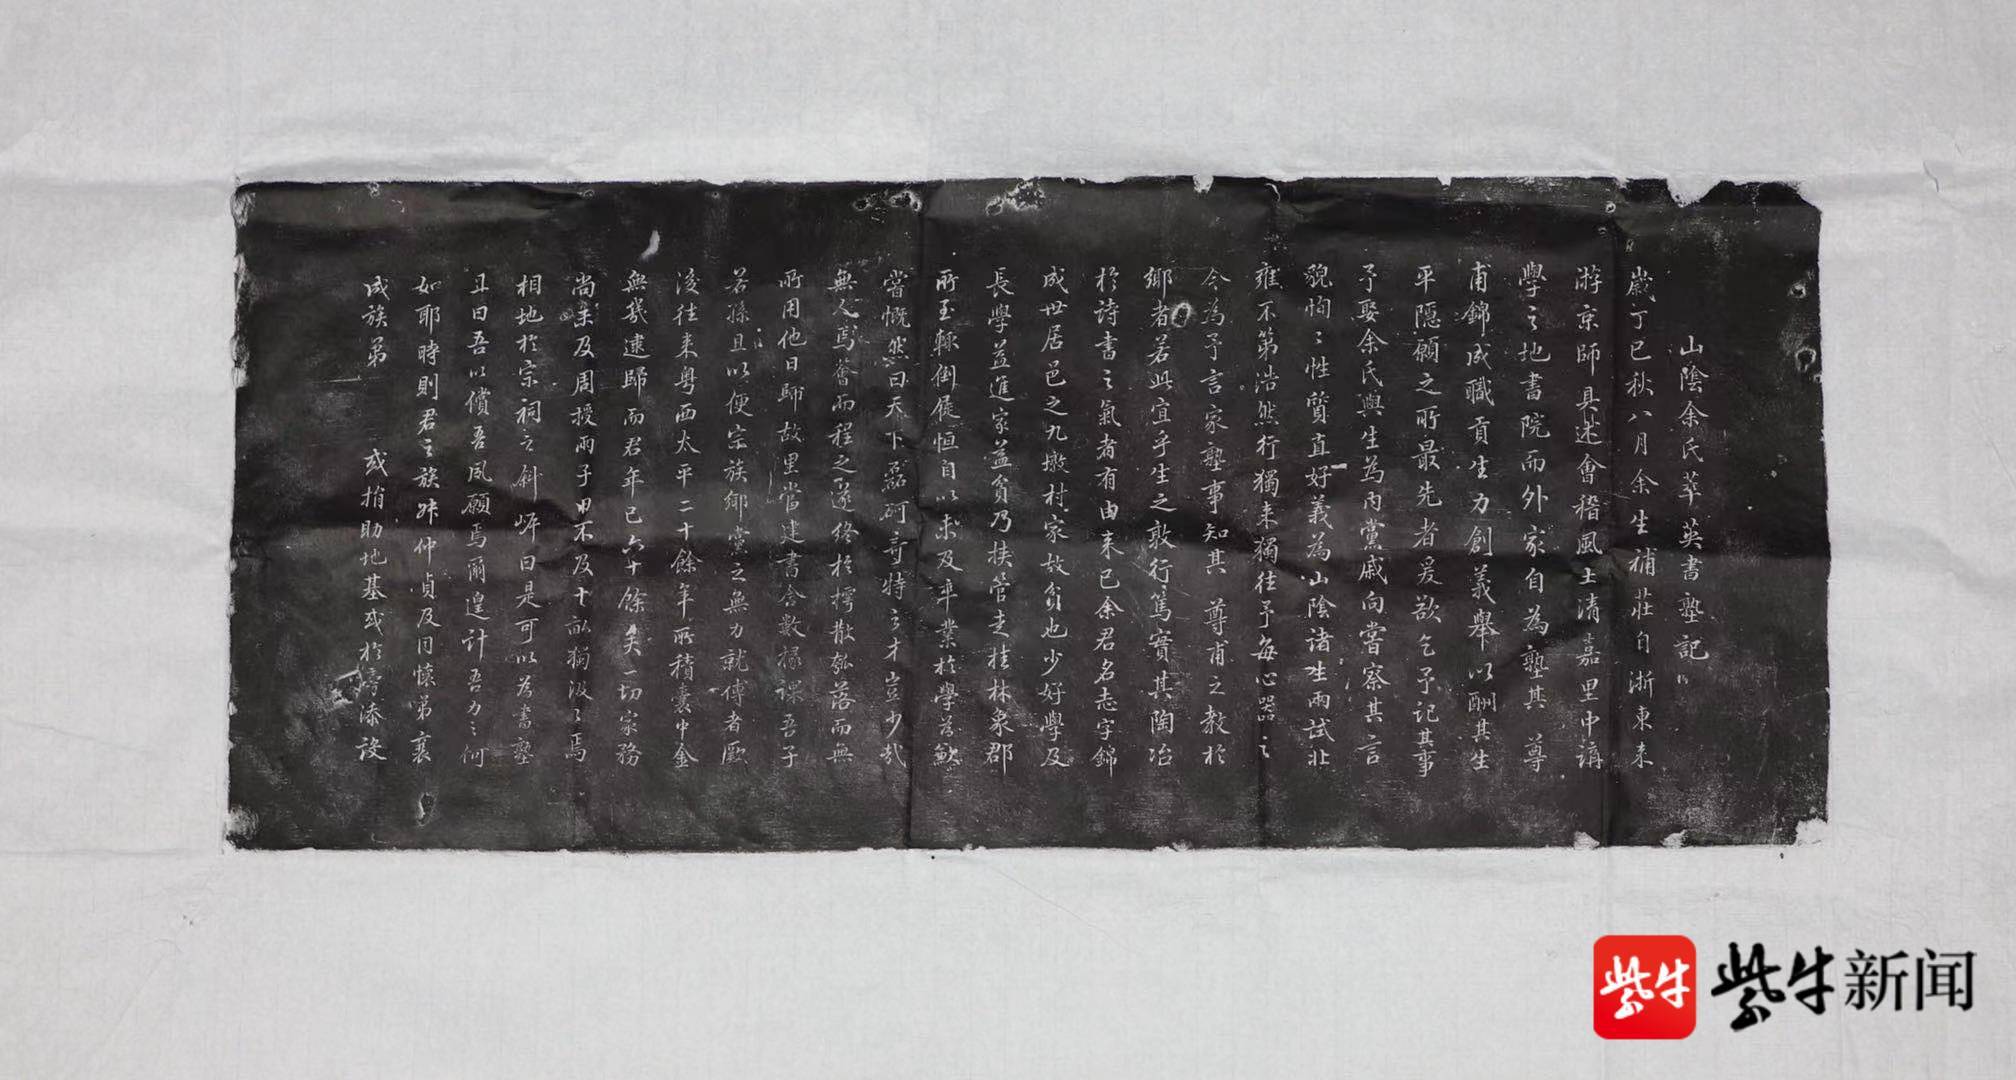 山陰余氏萃英書塾記
歲丁巳秋八月余生補莊自浙東來
游京師具述會稽風土清嘉里中講
學之地書院而外家自為塾其尊
甫錦成職貢生力創義舉以酬其生
平隱願之所最先者爰欲乞予記其事
予娶余氏與生為內黨戚向嘗察其言
貌恂〻性質直好義為山陰諸生兩試北
雍不第浩然行獨來獨往予每心器之
今為予言家塾事知其尊甫之教於
鄉者若此宜乎生之敦行篤實其陶冶
於詩書之氣者有由來已余君名志字錦
成世居邑之九墩村家故貧也少好學及
長學益進家益貧乃挾管走桂林象郡
所至輒倒屣恒自以未及卒業於學為歉
嘗慨然曰天下磊砢奇特之才豈少哉
無人焉薈而程之遂終於樗散瓠落而無
所用他日歸故里當建書舍數椽課吾子
若孫且以便宗族鄉黨之無力就傅者厥
後往來粵西太平二十餘年所積橐中金
無幾逮歸而君年已六十餘矣一切家務
尚未及周授兩子田不及十畝獨汲〻焉
相地於宗祠之斜岸曰是可以為書塾
且曰吾以償吾夙願焉爾遑計吾力之何
如耶時則君之族姪仲貞及同懷弟襄
成族弟 或捐助地基或於添設